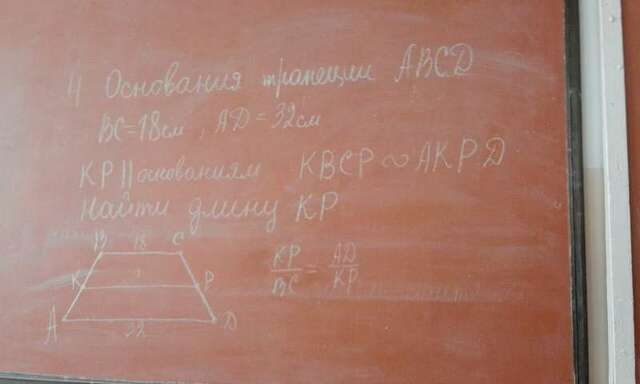 4 Основания трапеции ABCD
BC=18см, AD=32см
KP || основаниям KBCP ∾ AKPD
Найти длину KP
B 18 C
K P
A 32 D
KP/BC = AD/KP